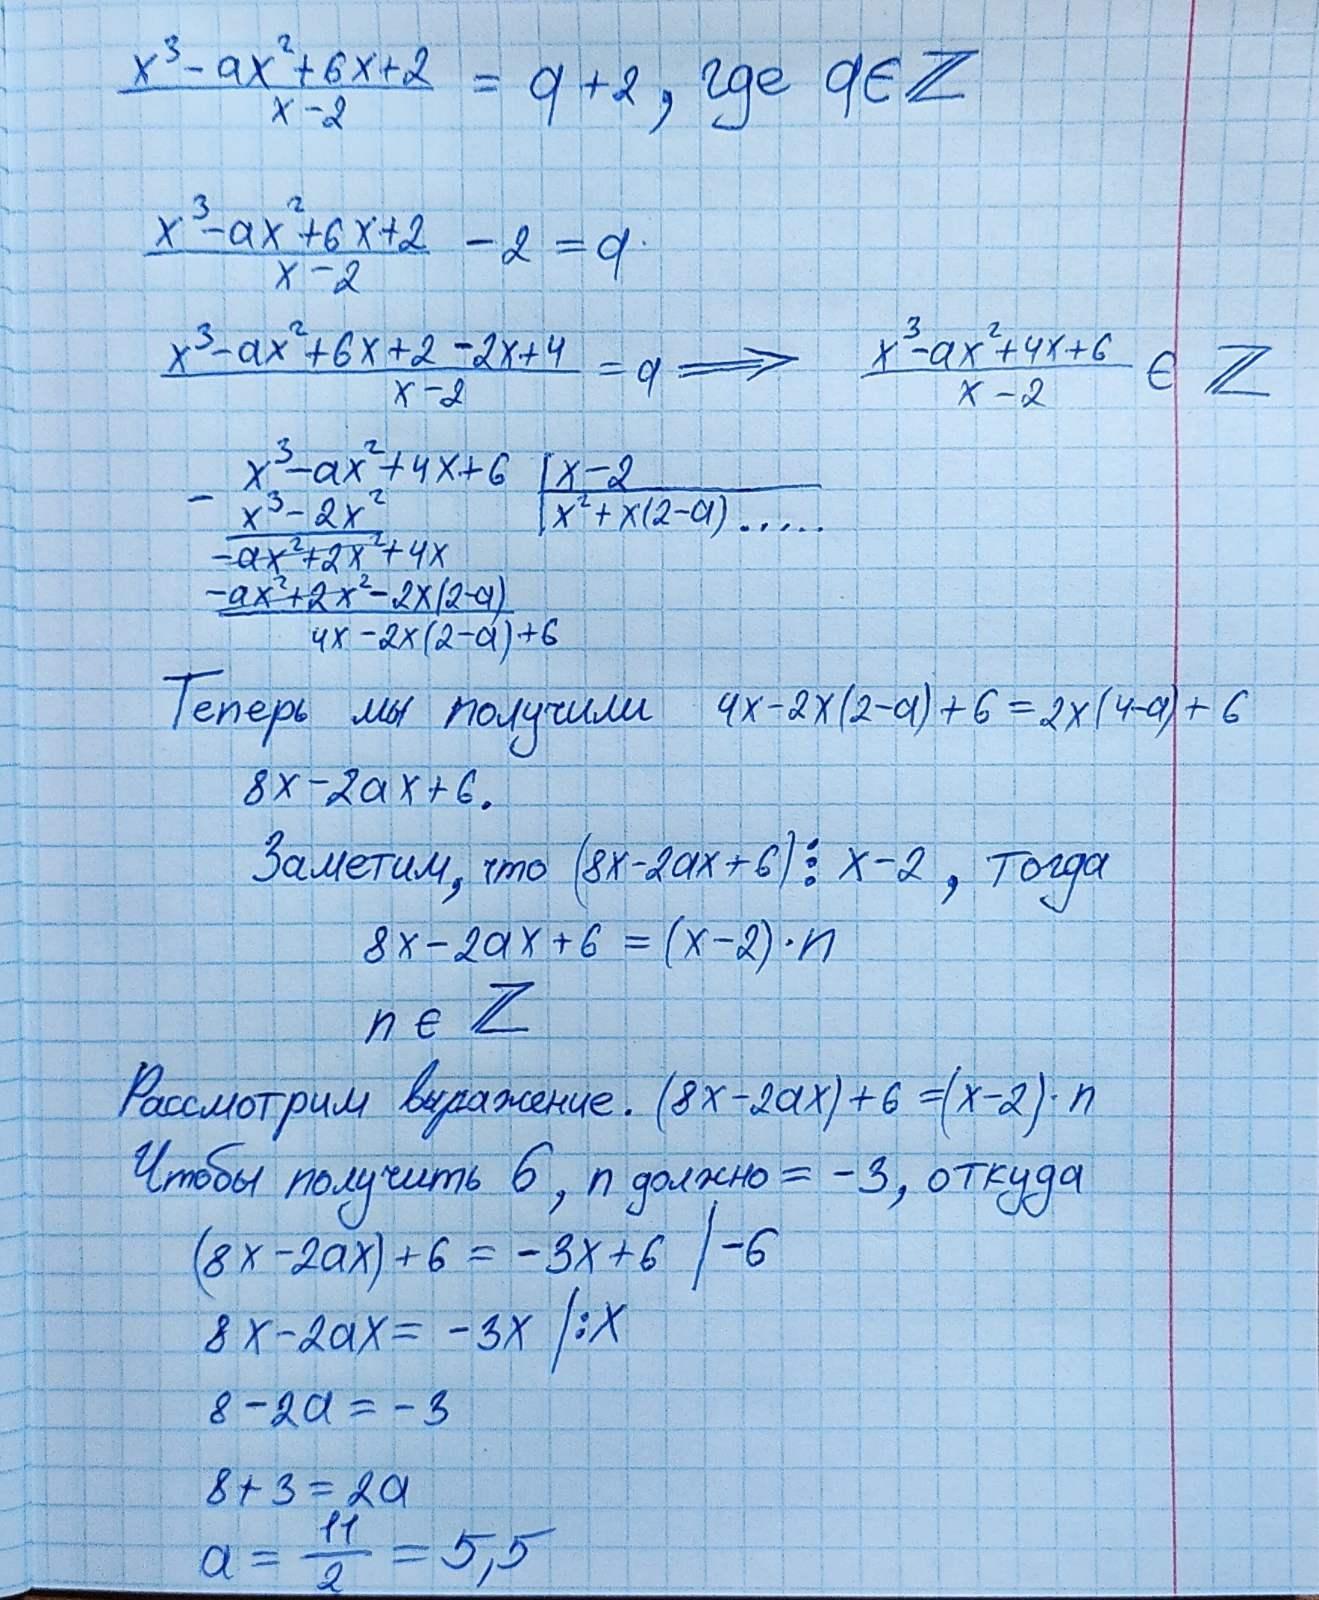 x³-ax²+6x+2 / x-2 = q+2, где q∈ℤ
x³-ax²+6x+2 / x-2 - 2 = q.
x³-ax²+6x+2-2x+4 / x-2 = q ⟹ x³-ax²+4x+6 / x-2 ∈ ℤ
- x³-ax²+4x+6 | x-2
x³-2x² | x²+x(2-a).....
-ax²+2x²+4x
-ax²+2x²-2x(2-a)
4x-2x(2-a)+6
Теперь мы получили 4x-2x(2-a)+6=2x(4-a)+6
8x-2ax+6.
Заметим, что (8x-2ax+6)⋮x-2, тогда
8x-2ax+6=(x-2)·n
n∈ℤ
Рассмотрим выражение. (8x-2ax)+6=(x-2)·n
Чтобы получить 6, n должно = -3, откуда
(8x-2ax)+6=-3x+6 |-6
8x-2ax=-3x |:x
8-2a=-3
8+3=2a
a=11/2=5,5